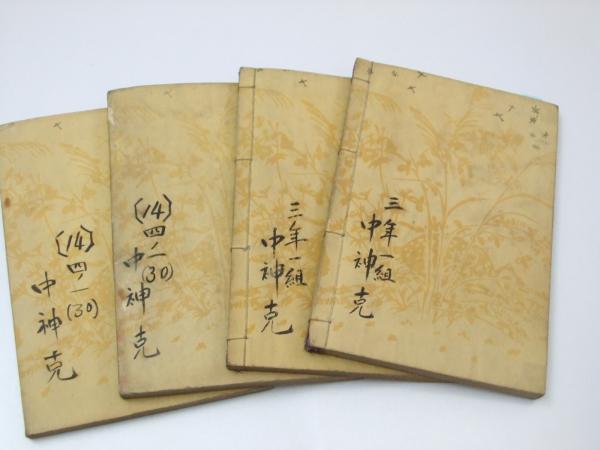 (14) 四ノ一 (30)
中神克
(14) 四ノ一 (30)
中神克
三年一組
中神克
三年一組
中神克